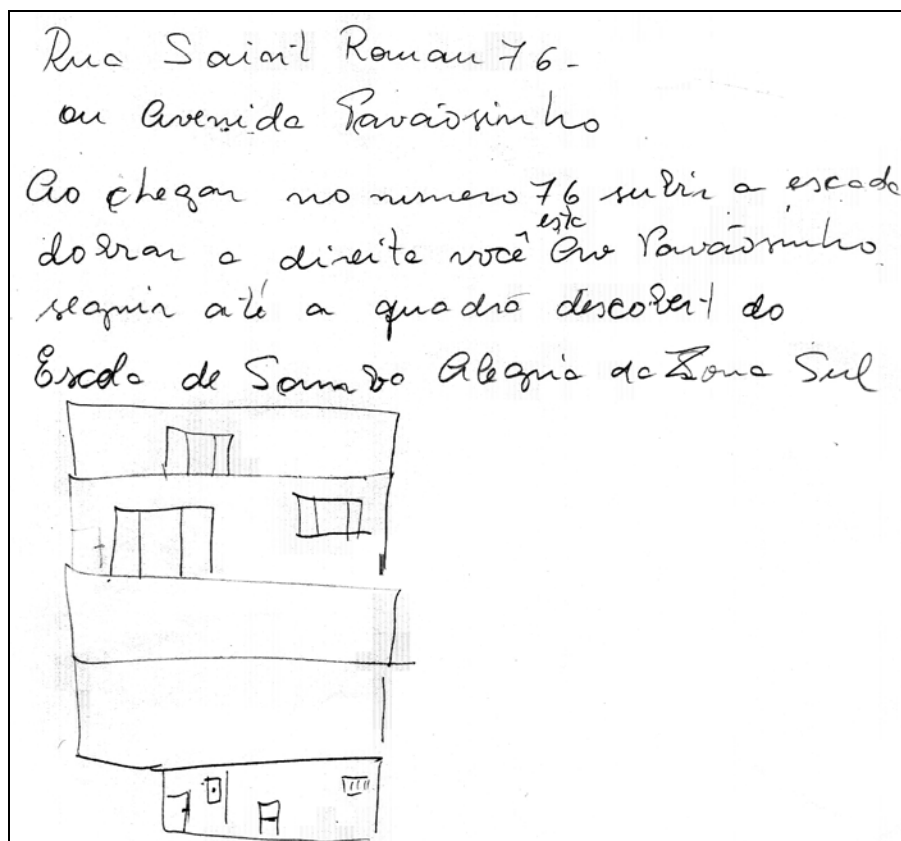 Rua Saint Roman 76-
ou Avenida Pavãosinho
Ao chegar no numero 76 subir a escada
dobrar a direita você está em Pavãosinho
seguir até a quadra descobert do
Escola de Samba Alegria da Zona Sul